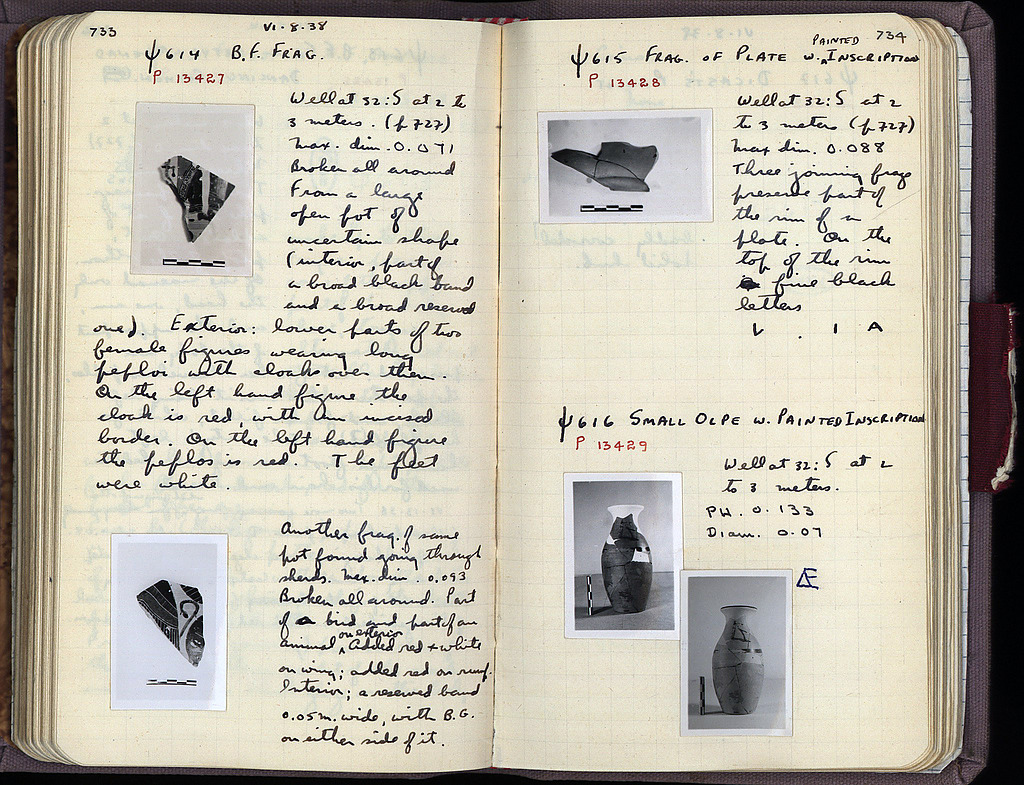 733
VI·8·38
Ψ614 B.F. FRAG.
P 13427
Well at 32:5 at 2 to
3 meters. (p 727)
Max. dim. 0.071
Broken all around
From a large
open pot of
uncertain shape
(interior, part of
a broad black band
and a broad reserved
one). Exterior: lower parts of two
female figures wearing long
peploi with cloaks over them.
On the left hand figure the
cloak is red, with an incised
border. On the left hand figure
the peplos is red. The feet
were white.
Another frag. of same
pot found going through
sherds. Max. dim. 0.093
Broken all around. Part
of a bird and part of an
animal on exterior. Added red + white
on wing; added red on rump.
Interior; a reserved band
0.05 m. wide, with B.G.
on either side of it.
734
Ψ615 FRAG. OF PLATE W. PAINTED INSCRIPTION
P 13428
Well at 32:5 at 2
to 3 meters (p 727)
Max dim. 0.088
Three joining frags
preserve part of
the rim of a
plate. On the
top of the rim
fine black
letters
Ψ616 SMALL OLPE W. PAINTED INSCRIPTION
P 13429
Well at 32:5 at 2
to 3 meters.
PH. 0.133
Diam. 0.07